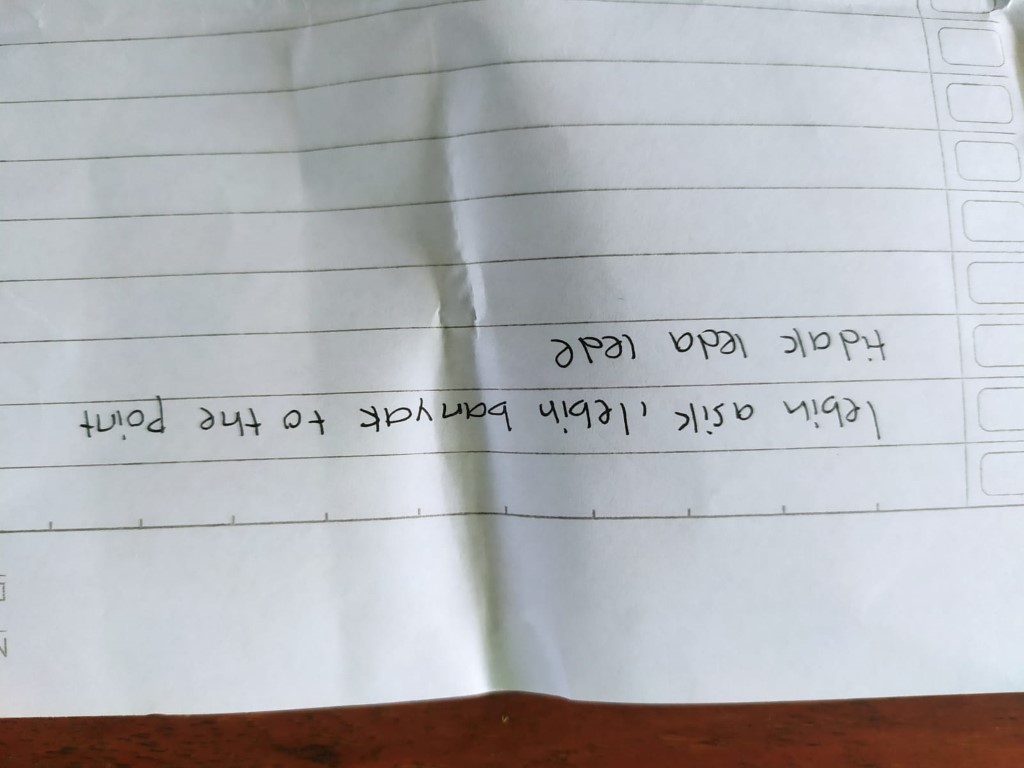 lebih asik, lebih banyak to the point
tidak leda lede